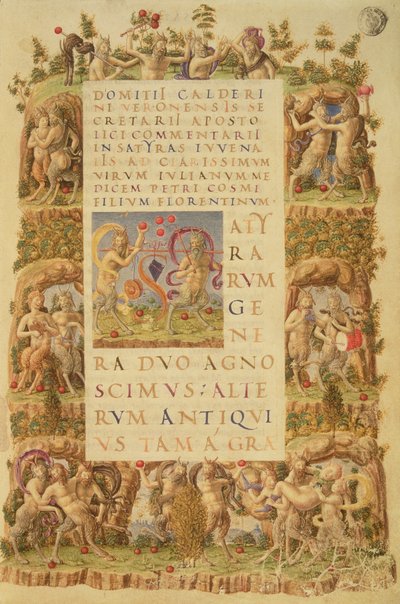 DOMITII CALDERI
NI VERONENSIS SE
CRETARII APOSTO
LICI COMMENTARII
IN SATYRAS IVVENA
LIS AD CLARISSIMVM
VIRVM IVLIANVM ME
DICEM PETRI COSMI
FILIVM FLORENTINVM
ATY
RA
RVM
GE
NE
RA DVO AGNO
SCIMVS: ALTE
RVM ANTIQVI
VS TAM A GRA